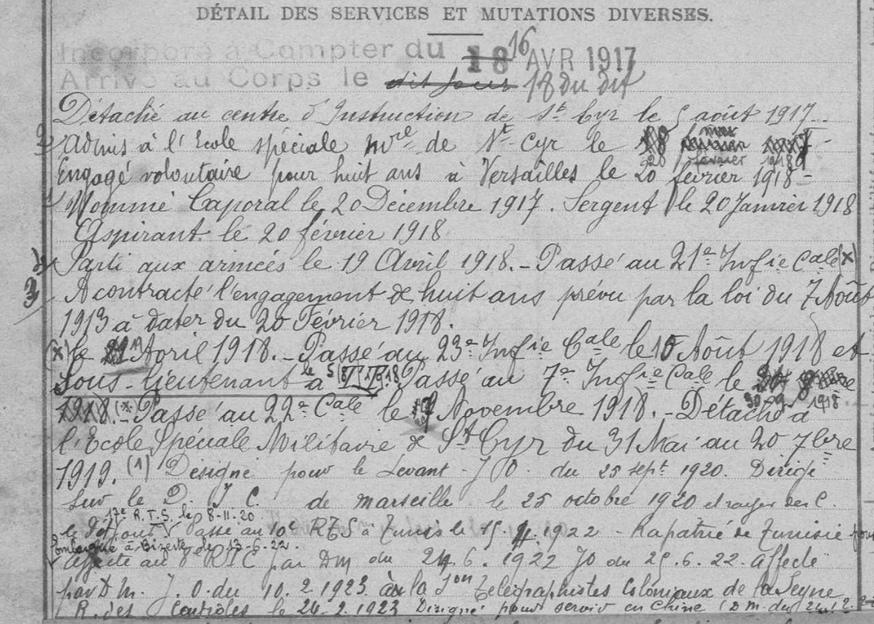 DÉTAIL DES SERVICES ET MUTATIONS DIVERSES.
Incorporé à Compter du 18 16 AVR 1917
Arrivé au Corps le dit jour 18 du dit
Détaché au centre d'Instruction de St Cyr le 5 août 1917
Admis à l'Ecole spéciale mre de St Cyr le 20 février 1918
Engagé volontaire pour huit ans à Versailles le 20 février 1918
Nommé Caporal le 20 Décembre 1917. Sergent le 20 Janvier 1918
Aspirant le 20 février 1918
Parti aux armées le 19 Avril 1918. - Passé au 21e Infie Cale (x)
A contracté l'engagement de huit ans prévu par la loi du 7 Août
1913 à dater du 20 Février 1918.
(x) le Avril 1918. - Passé au 23e Infie Cale le 15 Août 1918 et
Sous-lieutenant à Passé au 7e Infie Cale le
1918 (* Passé au 22e Cale le Novembre 1918. - Détaché à
l'Ecole Spéciale Militaire de St Cyr du 31 Mai au 20 7bre
1919. (1) Designe pour le Levant - J O. du 25 sept 1920. Dirigé
sur le D. I C. de marseille le 25 octobre 1920 et rayé des C.
le dit jour 17e R.T.S. le 8-11-20 Passé au 10e RTS à Tunis le 15. 4. 1922 - Rapatrié de Tunisie
Embarqué à Bizerte le 13-6-22.
Affecté au RIC par DM du 24.6.1922 JO du 25.6.22. affecté
par D m. J. O. du 10.2.1923 à la Son Télégraphistes Coloniaux de la Seyne
R. des Contrôles le 24-2-1923 Désigné pour servir en Chine (D M. du